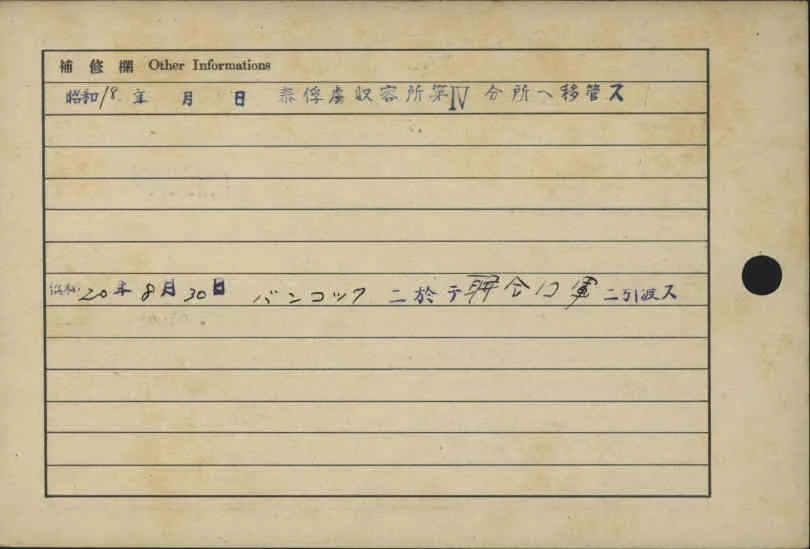 補修欄 Other Informations
昭和18年 月 日 泰俘虜収容所第IV分所ヘ移管ス
昭和20年8月30日 バンコック ニ於テ聯合口軍ニ引渡ス